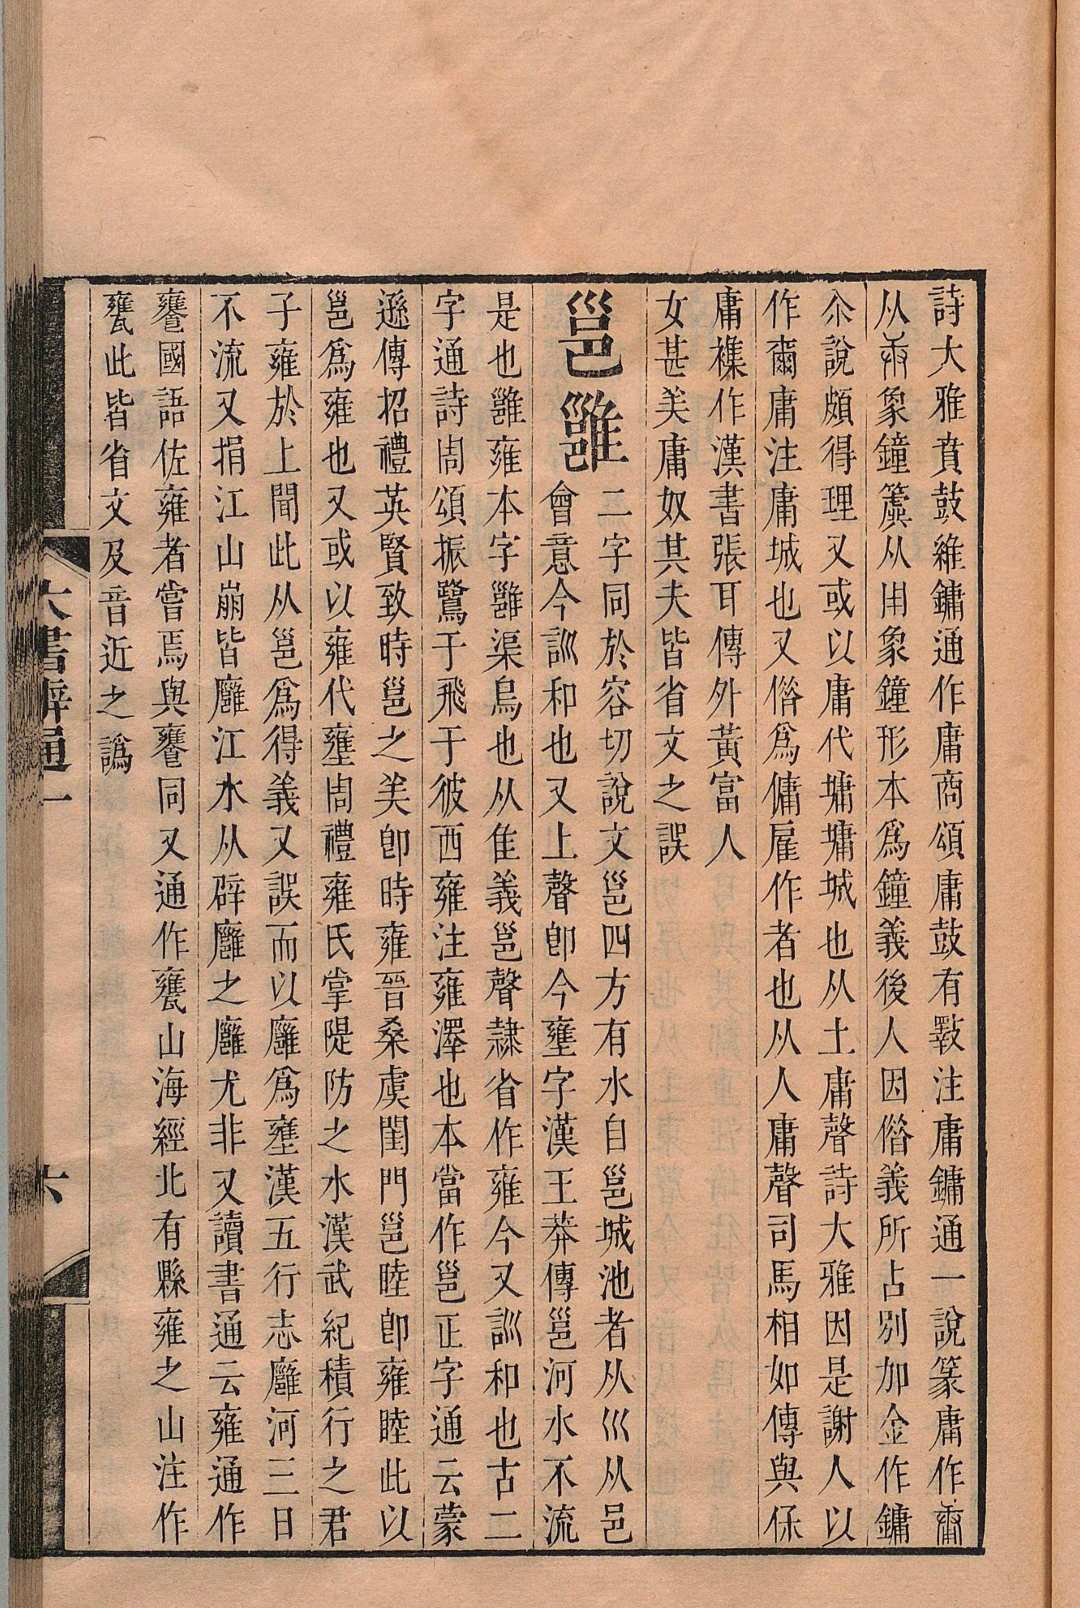 詩大雅賁鼓維鏞通作庸商頌庸鼓有斁注庸鏞通一說篆庸作𤰃
从𤰃象鐘簴从用象鐘形本爲鐘義後人因偕義所占別加金作鏞
尒說頗得理又或以庸代墉墉城也从土庸聲詩大雅因是謝人以
作爾庸注庸城也又偕爲傭雇作者也从人庸聲司馬相如傳與保
庸襍作漢書張耳傳外黃富人
女甚美庸奴其夫皆省文之誤
邕雝
二字同於容切說文邕四方有水自邕城池者从巛从邑
會意今訓和也又上聲卽今壅字漢王莽傳邕河水不流
是也雝雍本字雝渠鳥也从隹義邕聲隷省作雍今又訓和也古二
字通詩周頌振鷺于飛于彼西雍注雍澤也本當作邕正字通云蒙
遜傳招禮英賢致時邕之美卽時雍晉桑虞閨門邕睦卽雍睦此以
邕爲雍也又或以雍代壅周禮雍氏掌隄防之水漢武紀積行之君
子雍於上聞此从邕爲得義又誤而以廱爲壅漢五行志廱河三日
不流又捐江山崩皆廱江水从辟廱之廱尤非又讀書通云雍通作
饔國語佐雍者嘗焉與饔同又通作甕山海經北有縣雍之山注作
甕此皆省文及音近之譌
六書辨通一
六